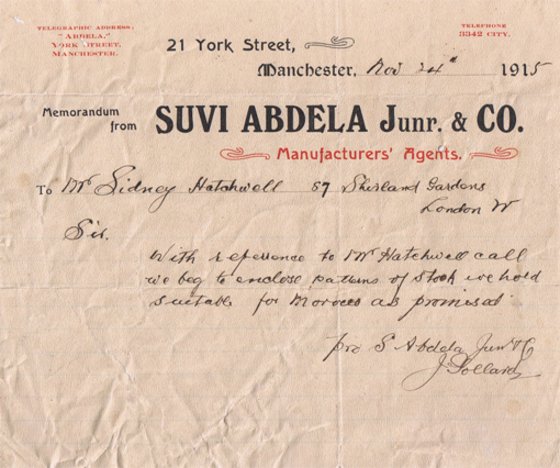 TELEGRAPHIC ADDRESS:
"ABDELA,"
YORK STREET,
MANCHESTER.
TELEPHONE
3342 CITY.
21 York Street,
Manchester, Nov 24th 1915
Memorandum
from
SUVI ABDELA Junr. & CO.
Manufacturers' Agents.
To Mr Sidney Hatchwell 57 Shirland Gardens
London W
Sir.
With reference to Mr Hatchwell call
we beg to enclose patterns of stock we hold
suitable for Morocco as promised.
pro S Abdela Junr & Co
J. Pollard